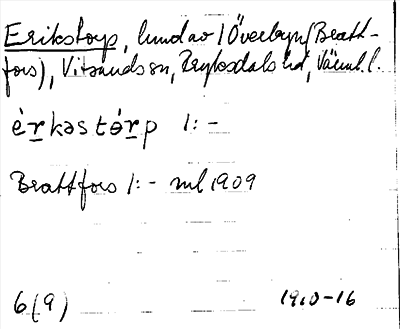 Erikstorp, lund av (Överbyn/Bratt-
fors), Vitsands sn, Fryksdals hd, Värml. l.
èrkəstórp /: -
Brattfors /: - ml 1909
6(9) 1910-16